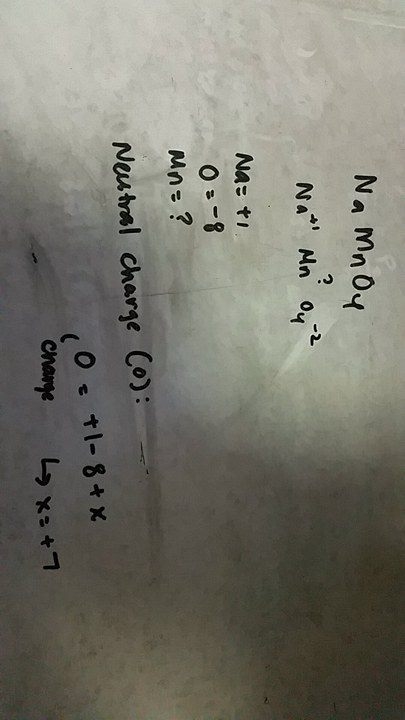 Na MnO4
Na+1 Mn? O4-2
Na = +1
O = -8
Mn = ?
Neutral charge (0):
0 = +1 - 8 + x
charge ↳ x = +7